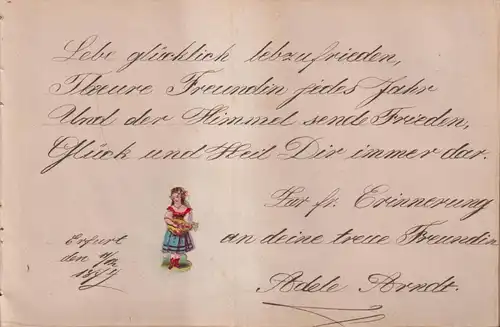 Lebe glücklich leb zufrieden,
Theure Freundin jedes Jahr
Und der Himmel sende Frieden,
Glück und Heil Dir immer dar.
Zur fr. Erinnerung
an deine treue Freundin
Adele Arndt.
Erfurt
den